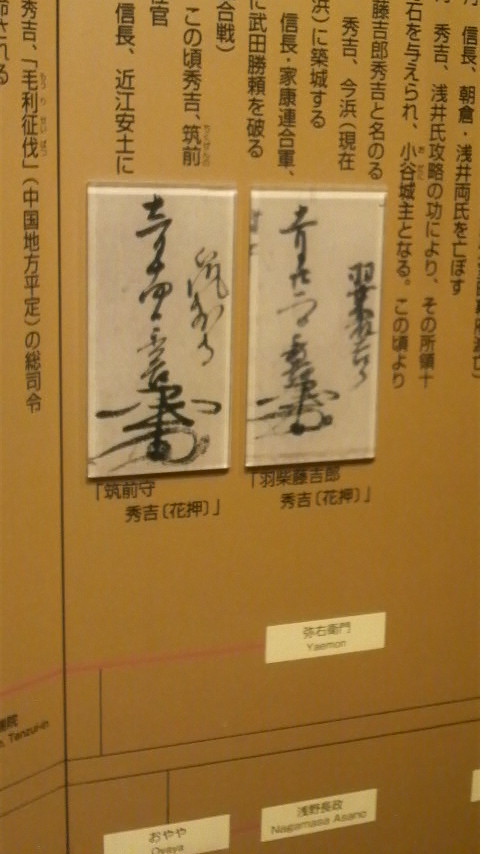 信長、朝倉・浅井両氏を亡ぼす
秀吉、浅井氏攻略の功により、その所領十
石を与えられ、小谷城主となる。この頃より
藤吉郎秀吉と名のる
秀吉、今浜(現在
浜)に築城する
信長・家康連合軍、
に武田勝頼を破る
合戦)
この頃秀吉、筑前
ちくぜんの
任官
信長、近江安土に
秀吉、「毛利征伐」(中国地方平定)の総司令
もうりせいばつ
命される
「羽柴藤吉郎
秀吉〔花押〕」
「筑前守
秀吉〔花押〕」
弥右衛門
Yaemon
Tenzui-in
浅野長政
Nagamasa Asano
おやや
Oyaya